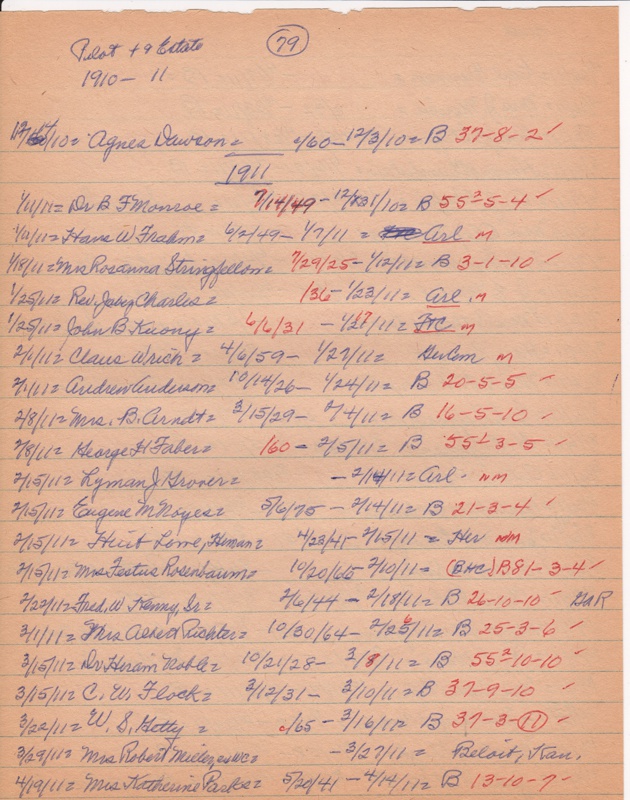 79
Pilot + 9 Estate
1910-11
12/ /10= Agnes Dawson= /60-12/3/10= B 37-8-2 ✓
1911
1/11/11= Dr B F Monroe= 7/14/49 -12/31/10= B 55²5-4 ✓
1/11/11= Hans W Frahm= 6/2/49- 1/7/11 = Arl M
1/18/11= Mrs Rosanna Stringfellow= 7/29/25-1/12/11= B 3-1-10 ✓
1/25/11= Rev. Jabez Charles= /36-1/23/11= Arl. M
1/25/11= John B Kuony= 6/6/31 - 1/27/11= M
2/1/11= Claus Wrich= 4/6/59- 1/27/11= GerCem M
2/1/11= Andrew Anderson= 10/14/26- 1/24/11= B 20-5-5 ✓
2/8/11= Mrs. B. Arndt= 3/15/29- 2/4/11= B 16-5-10 ✓
2/8/11= George H Faber= /60- 2/5/11= B 55¹-3-5 ✓
2/15/11= Lyman J Grover= -2/14/11= Arl- NM
2/15/11= Eugene M Noyes= 5/6/75- 2/14/11= B 21-3-4 ✓
2/15/11= Lowe, Heman= 4/23/41- 2/15/11= Her NM
2/15/11= Mrs Festus Rosenbaum= 10/20/65 2/10/11= (BHC) B81-3-4 ✓
2/22/11= Fred. W Kenny, Sr= 2/6/44- 2/18/11= B 26-10-10 ✓ GAR
3/1/11= Mrs Albert Richter= 10/30/64- 2/25/11= B 25-3-6 ✓
3/15/11= Dr. Hiram Noble= 10/21/28- 3/8/11= B 55²10-10 ✓
3/15/11= C. W. Flock= 3/12/31- 3/10/11= B 37-9-10 ✓
3/22/11= W. S. Getty= /65- 3/16/11= B 37-3-11 ✓
3/29/11= Mrs Robert -3/27/11= Beloit, Kan.
4/19/11= Mrs Katherine Parks= 5/20/41-4/14/11= B 13-10-7 ✓